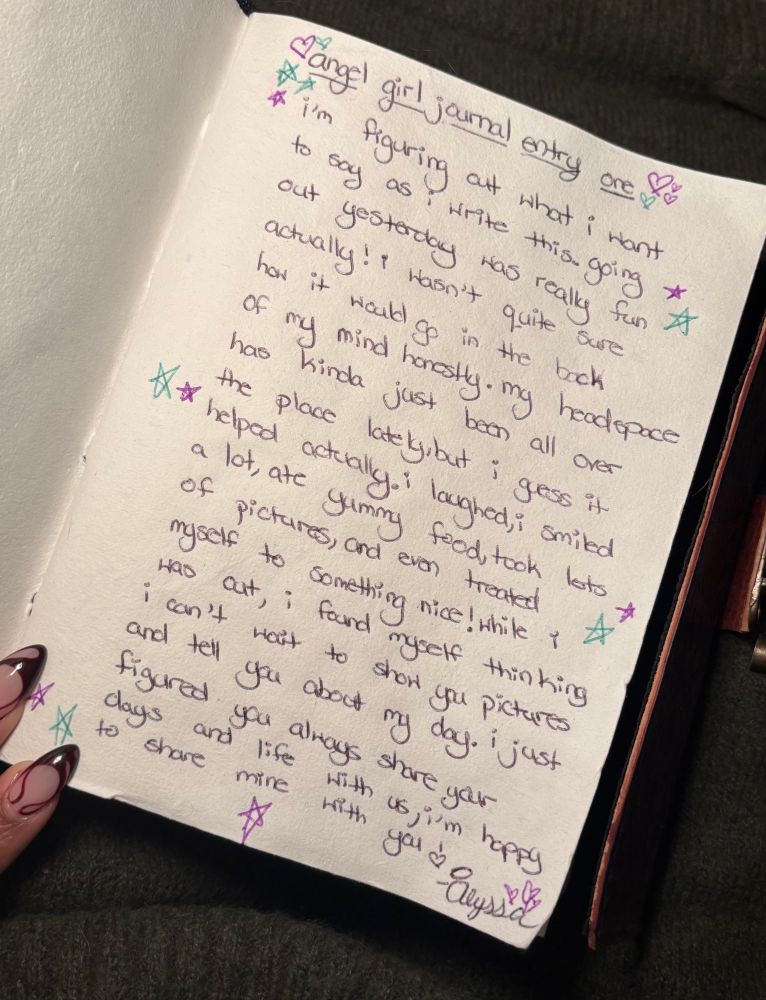 angel girl journal entry one
i'm figuring out what i want
to say as i write this. going
out yesterday was really fun
actually! i wasn't quite sure
how it would go in the back
of my mind honestly. my headspace
has kinda just been all over
the place lately, but i guess it
helped actually. i laughed, i smiled
a lot, ate yummy food, took lots
of pictures, and even treated
myself to something nice! while i
was out, i found myself thinking
i can't wait to show you pictures
and tell you about my day. i just
figured you always share your
days and life with us, i'm happy
to share mine with you!
-Alyssa